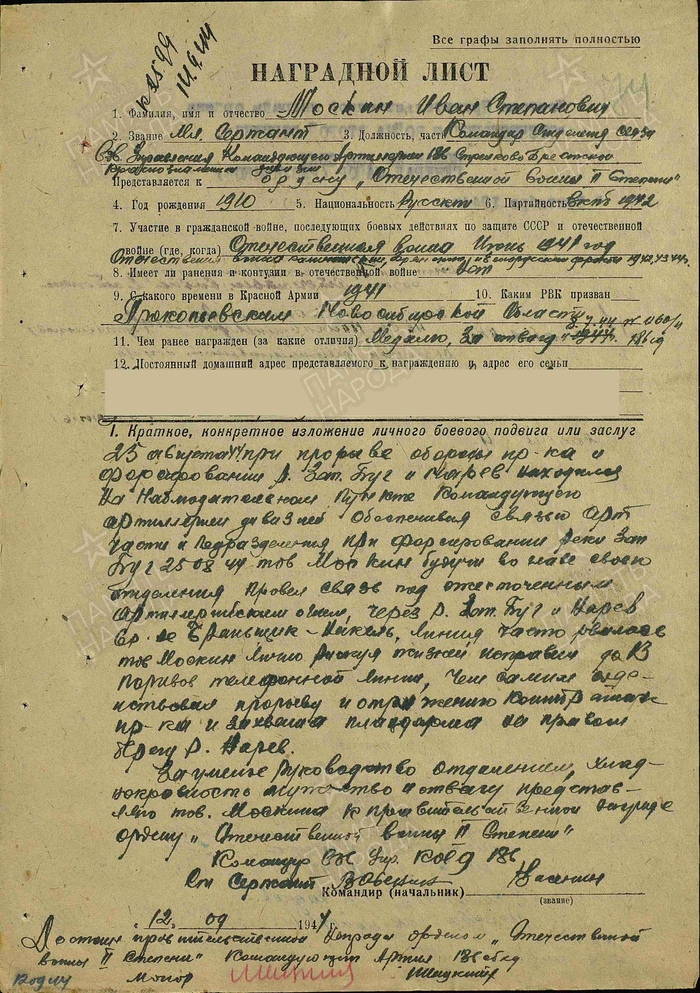 Все графы заполнять полностью
14.9.44
НАГРАДНОЙ ЛИСТ
1. Фамилия, имя и отчество Москин Иван Степанович
2. Звание Мл. Сержант 3. Должность, часть Командир Отделения связи
Управления Командующего Артиллерии 186 Стрелковой Брестской
Краснознаменной дивизии
Представляется к ордену „Отечественной Войны II Степени"
4. Год рождения 1910 5. Национальность Русский 6. Партийность ВКПб 1942
7. Участие в гражданской войне, последующих боевых действиях по защите СССР и отечественной
войне (где, когда) Отечественная война Июнь 1941 год
Отечественная война 1942, 43, 44г.
8. Имеет ли ранения и контузии в отечественной войне нет
9. С какого времени в Красной Армии 1941 10. Каким РВК призван
Прокопьевским Новосибирской Области
11. Чем ранее награжден (за какие отличия) Медалью „За отвагу" 186 сд
12. Постоянный домашний адрес представляемого к награждению и адрес его семьи
I. Краткое, конкретное изложение личного боевого подвига или заслуг
25 августа при прорыве обороны пр-ка и
форсировании р. Зап. Буг и Нарев находился
на Наблюдательном пункте Командующего
артиллерией дивизией обеспечивая связью Арт
части и подразделения при форсировании реки Зап
Буг 25 08 44 тов Москин будучи во главе своего
отделения провел связь под ожесточенным
артиллерийским огнем, через р. Зап. Буг и Нарев
линия часто рвалась
тов Москин лично рискуя жизней исправил до 13
порывов телефонной линии, чем самым
прорыву и отражению контратак
пр-ка и захвата плацдарма на правом
берегу р. Нарев.
За умелое руководство отделением, хлад-
нокровность мужество и отвагу представ-
ляю тов. Москина к правительственной награде
ордену „Отечественной войны II Степени"
Командир Упр. 186
Ст Сержант
Командир (начальник)
(звание)
„12" 09 1944 г.
Достоин правительственной награды орденом „Отечественной
войны II Степени" Командующий Артил 186
Майор